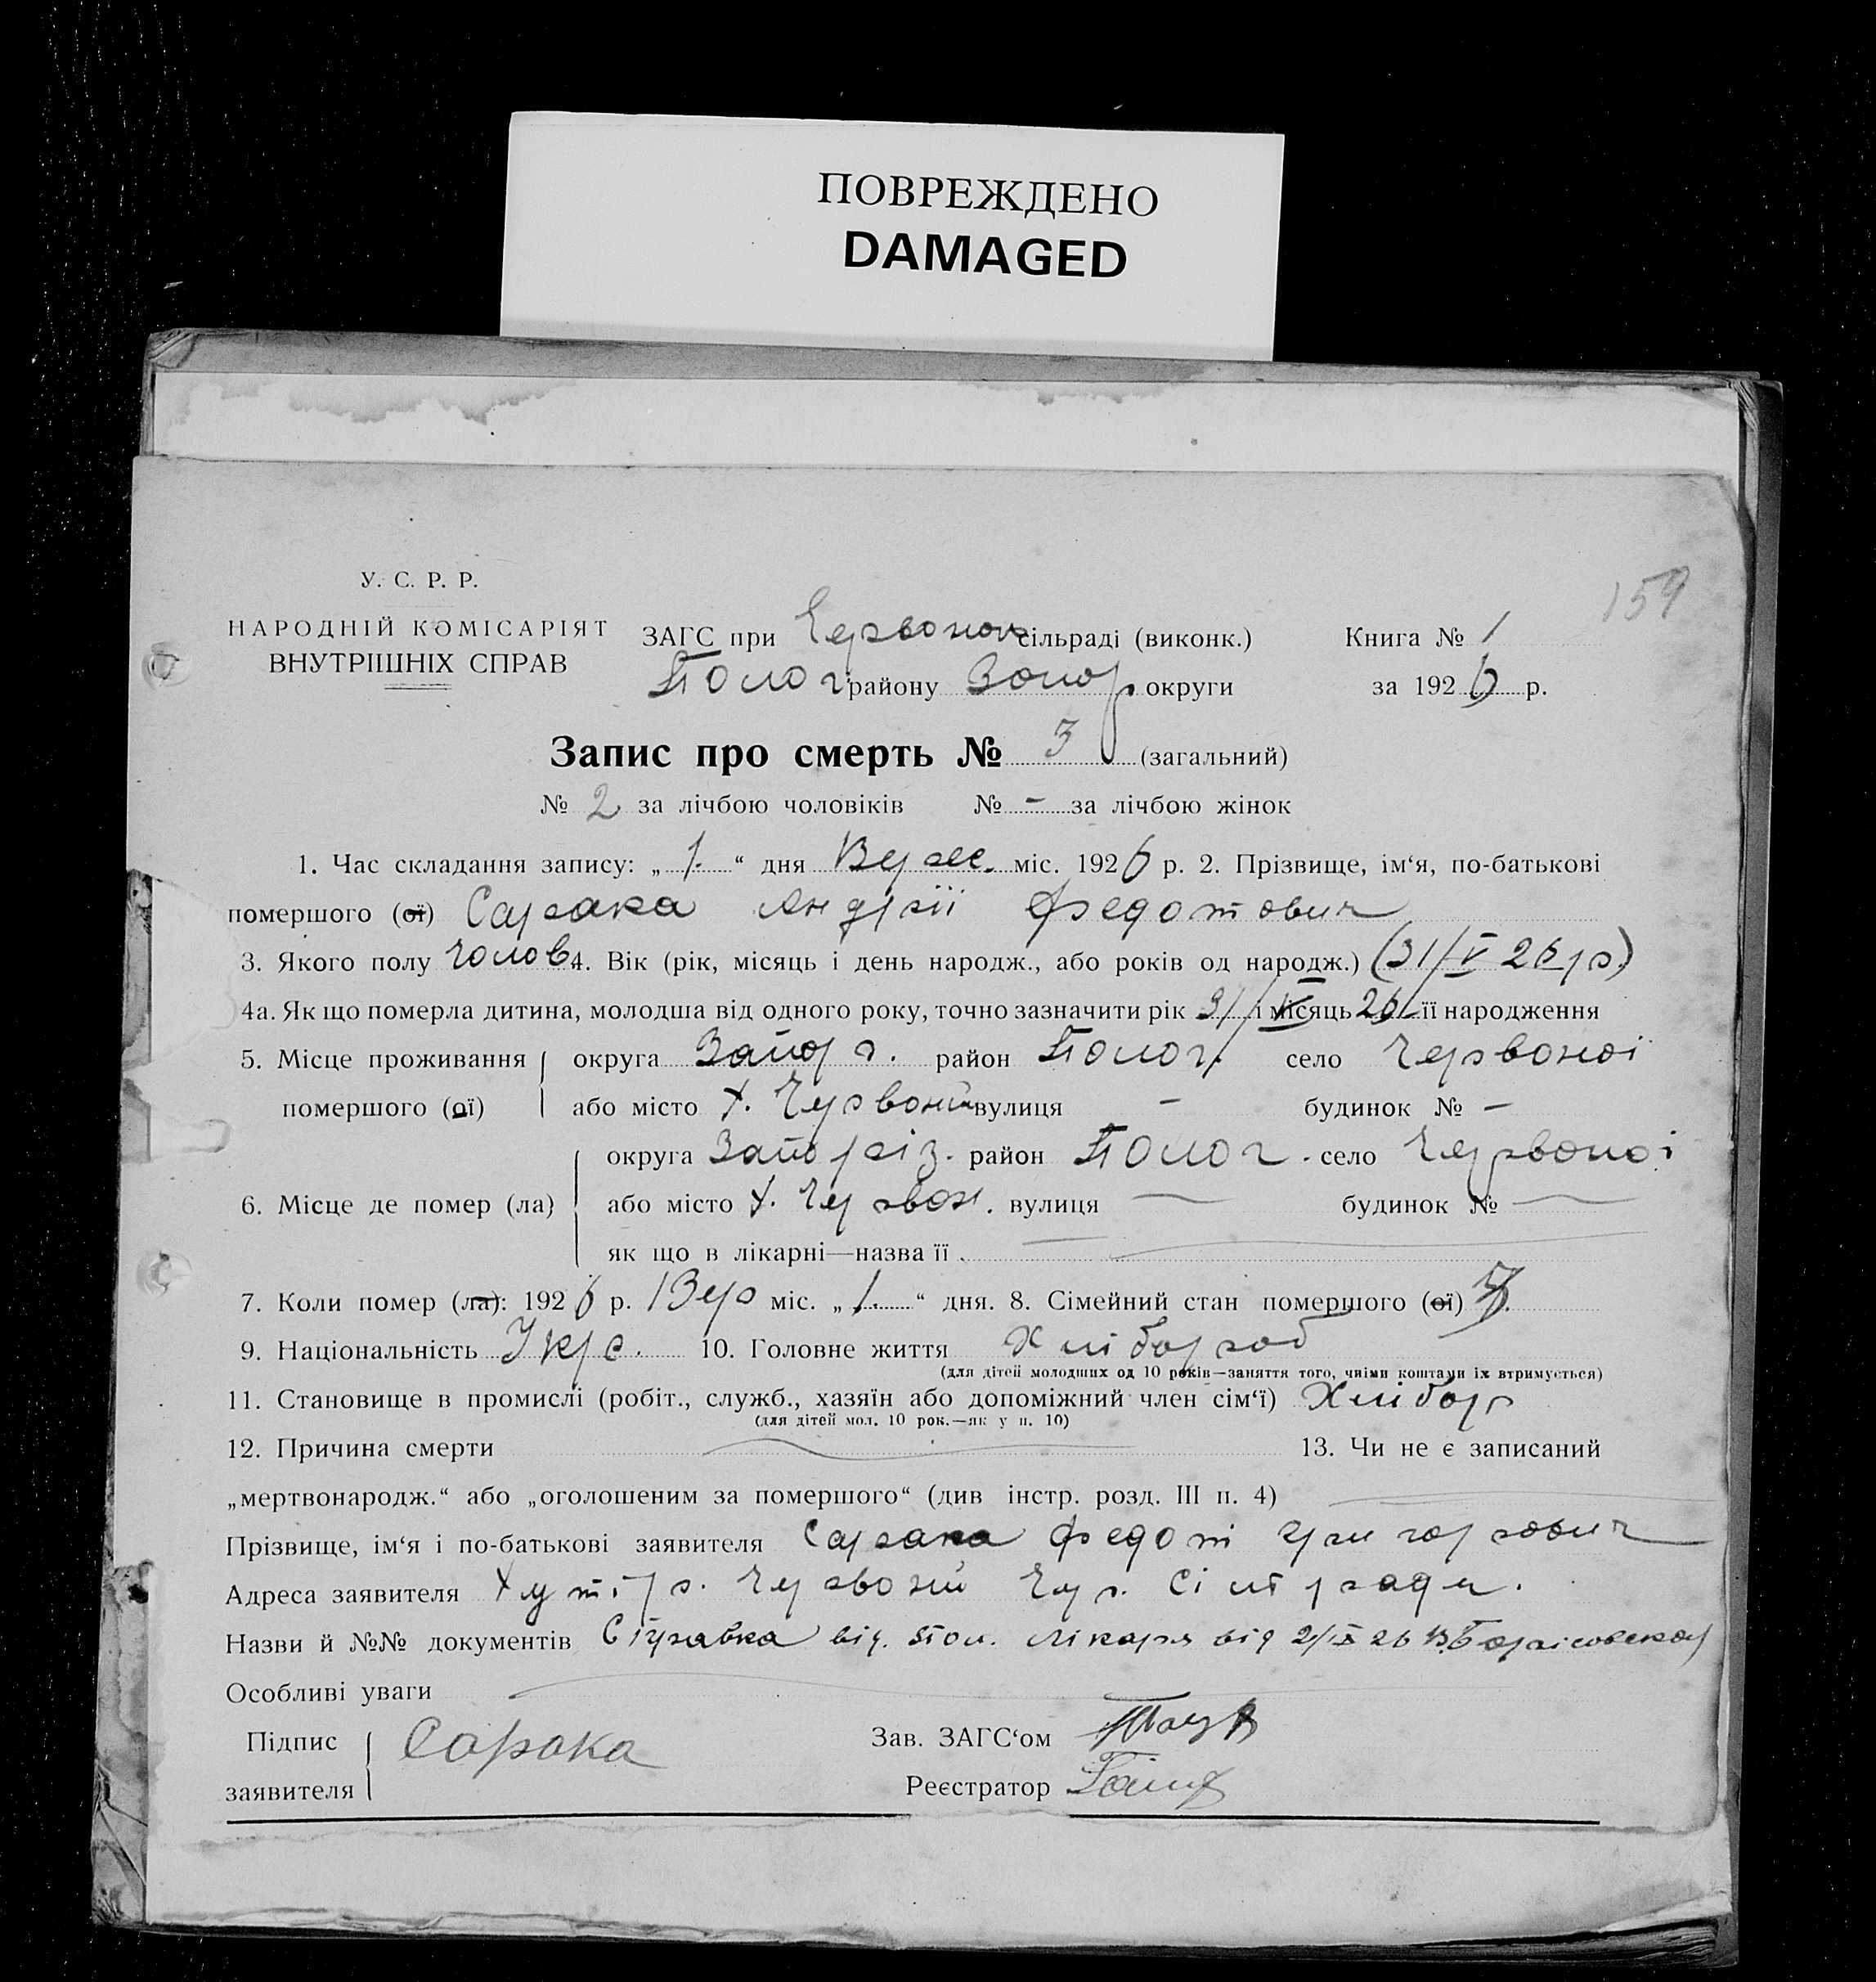 ПОВРЕЖДЕНО
DAMAGED
159
У. С. Р. Р.
НАРОДНІЙ КОМІСАРІЯТ
ВНУТРІШНІХ СПРАВ
ЗАГС при Червоной сільраді (виконк.) Книга № 1
Полог району Запор округи за 1926 р.
Запис про смерть № 3 (загальний)
№ 2 за лічбою чоловіків № - за лічбою жінок
1. Час складання запису: „1.“ дня Верес. міс. 1926 р. 2. Прізвище, ім‘я, по-батькові
помершого (ої) Сарака Андрій Федотович
3. Якого полу Чолов 4. Вік (рік, місяць і день народж., або років од народж.) (31/V 26 р)
4а. Як що померла дитина, молодша від одного року, точно зазначити рік 31/ і місяць 26 її народження
5. Місце проживання округа Запор. район Полог. село Червоної
помершого (ої) або місто х. Червоний вулиця - будинок № -
округа Запоріз. район Полог. село Червоної
6. Місце де помер (ла) або місто х. Червон. вулиця — будинок № —
як що в лікарні—назва її
7. Коли помер (ла): 1926 р. Вер міс. „1.“ дня. 8. Сімейний стан помершого (ої)
9. Національність Укр. 10. Головне життя Хлібороб
(для дітей молодших од 10 років—заняття того, чиїми коштами їх втримується)
11. Становище в промислі (робіт., служб., хазяїн або допоміжний член сім‘ї) Хлібор
(для дітей мол. 10 рок.—як у п. 10)
12. Причина смерти — 13. Чи не є записаний
„мертвонародж.“ або „оголошеним за помершого“ (див інстр. розд. III п. 4) —
Прізвище, ім‘я і по-батькові заявителя Сарака Федот Григорович
Адреса заявителя Хутір. Червоний Чер. Сільради.
Назви й №№ документів Справка від. Пол. Лікаря від 2/IX 26
Особливі уваги —
Підпис Сорока Зав. ЗАГС‘ом
заявителя Реєстратор